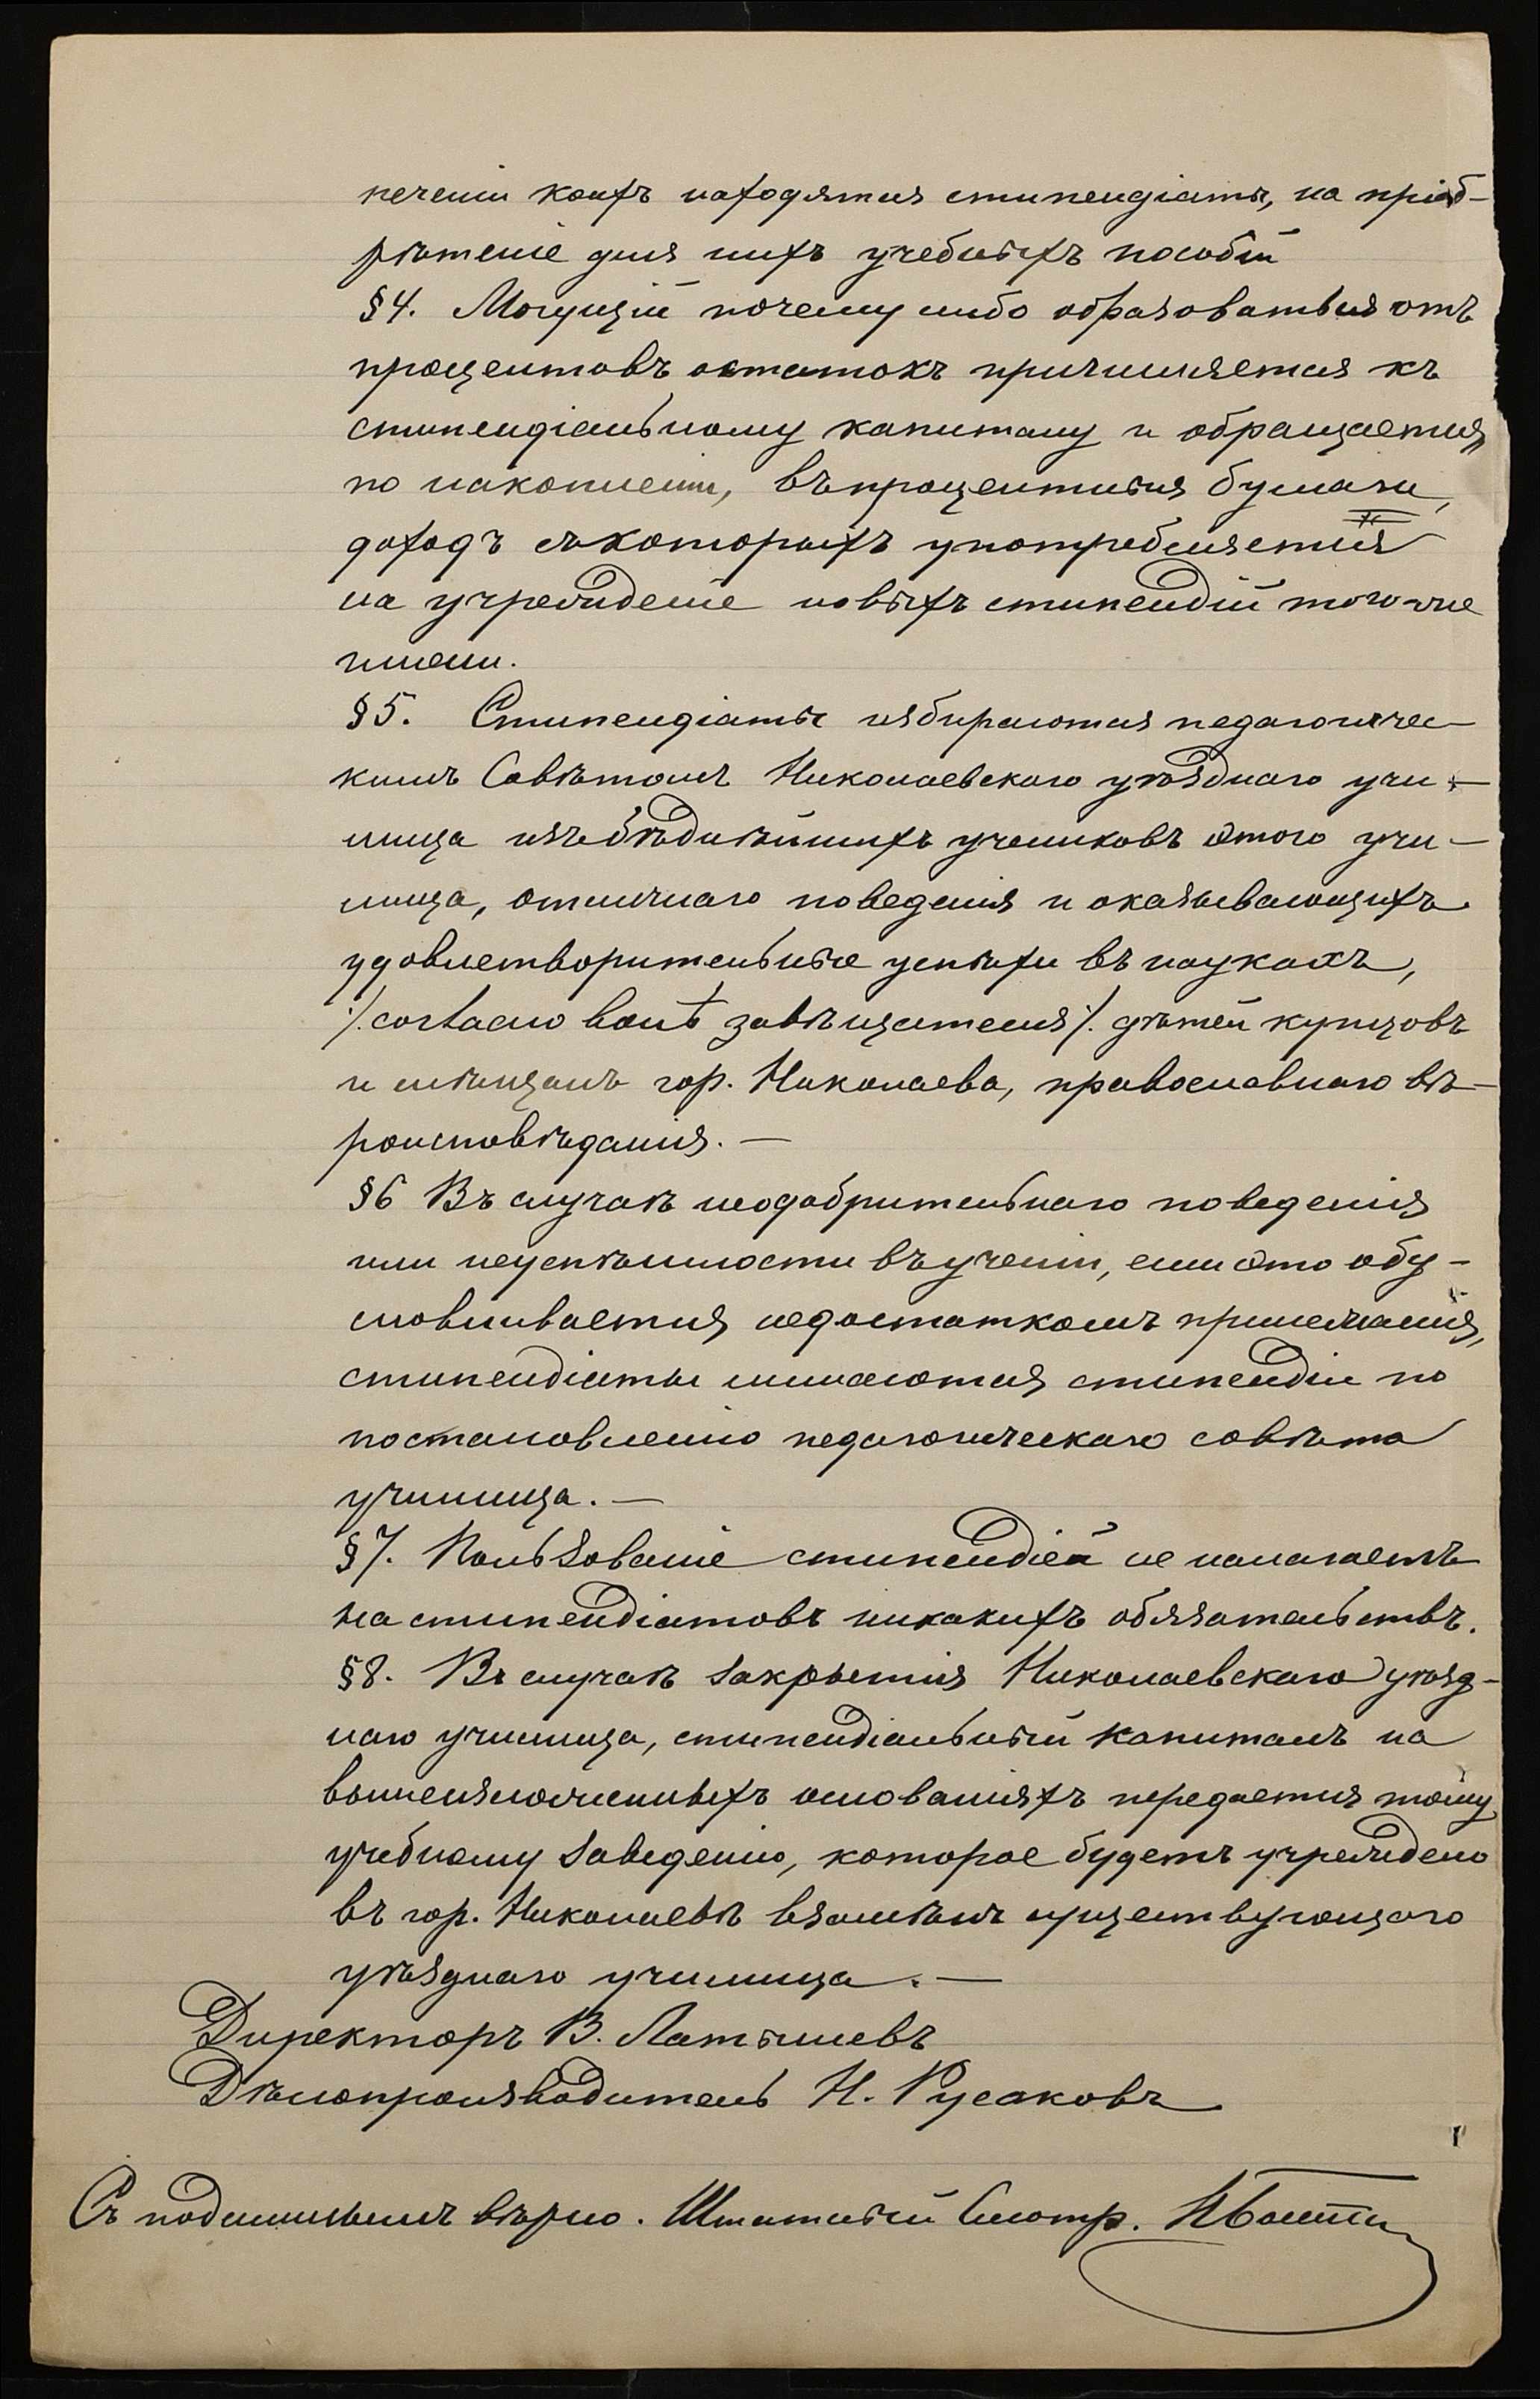 печеніи коихъ находятся стипендіаты, на пріоб-
рѣтеніе для нихъ учебныхъ пособій
§ 4. Могущій почему либо образоваться отъ
процентовъ остатокъ причисляется къ
стипендіальному капиталу и обращается,
по накопленіи, въ процентныя бумаги,
доходъ съ которыхъ употребляется
на учрежденіе новыхъ стипендій того-же
имени.
§ 5. Стипендіаты избираются педагогичес-
кимъ Совѣтомъ Николаевскаго уѣзднаго учи-
лища изъ бѣднѣйшихъ учениковъ этого учи-
лища, отличнаго поведенія и оказывающихъ
удовлетворительные успѣхи въ наукахъ,
/. согласно волѣ завѣщателя /. дѣтей купцовъ
и мѣщанъ гор. Николаева, православнаго вѣ-
роисповѣданія. —
§ 6 Въ случаѣ неодобрительнаго поведенія
или неуспѣшности въ ученіи, если это обу-
словливается недостаткомъ прилежанія,
стипендіаты лишаются стипендіи по
постановленію педагогическаго совѣта
училища. —
§ 7. Пользованіе стипендіей не налагаетъ
на стипендіатовъ никакихъ обязательствъ.
§ 8. Въ случаѣ закрытія Николаевскаго уѣзд-
наго училища, стипендіальный капиталъ на
вышеизложенныхъ основаніяхъ передается тому
учебному заведенію, которое будетъ учреждено
въ гор. Николаевѣ взамѣнъ существующаго
уѣзднаго училища. —
Директоръ В. Латышевъ
Дѣлопроизводитель Н. Русаковъ
Съ подлиннымъ вѣрно. Штатный Смотр.